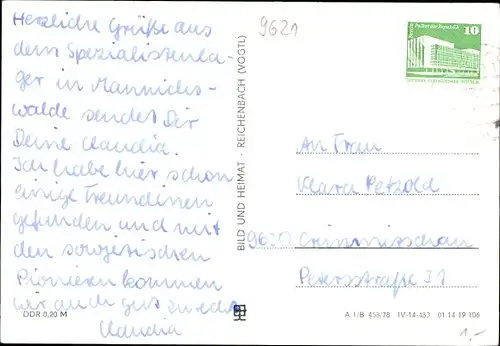 Herzliche Grüße aus
dem Spezialistenla-
ger in Mannichs-
walde sendet Dir
Deine Claudia.
Ich habe hier schon
einige Freundinen
gefunden und mit
den sowjetischen
Pionieren kommen
wir auch gut zurecht
Claudia
DDR 0,20 M
9621
BILD UND HEIMAT · REICHENBACH (VOGTL)
Berlin Palast der Republik
10
An Frau
Klara Petzold
9630 Crimmitschau
Petersstraße 31
A 1/B 455/78 IV-14-483 01 14 19 106
1,-